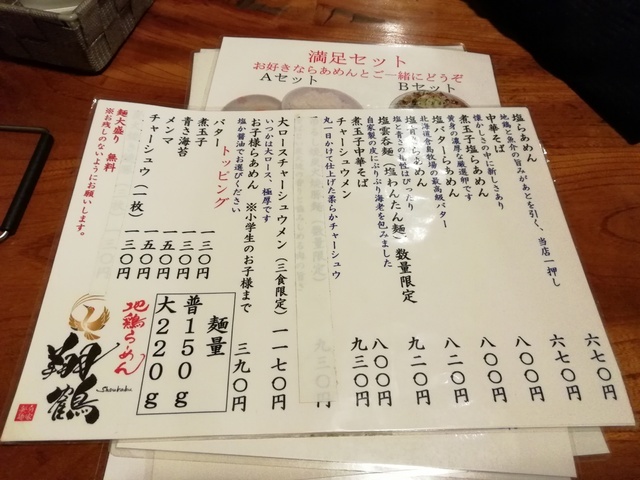 満足セット
お好きならあめんとご一緒にどうぞ
Aセット
Bセット
塩らあめん 六七〇円
地鶏と魚介の旨みがあとを引く、当店一押し
中華そば 六七〇円
懐かしさの中に新しさあり
煮玉子塩らあめん 八〇〇円
黄身の濃厚な厳選卵です
塩バターらあめん 八〇〇円
北海道倉島牧場の最高級バター
塩青さらあめん 八二〇円
塩と青さの相性はぴったり
塩雲呑麺（塩わんたん麺）数量限定 九二〇円
自家製の皮にぷりぷり海老を包みました
煮玉子中華そば 八〇〇円
チャーシュウメン 九三〇円
丸一日かけて仕上げた柔らかチャーシュウ
大ロースチャーシュウメン（三食限定） 一一七〇円
いつかは大ロース、極厚です
お子様らあめん ※小学生のお子様まで 三九〇円
塩か醤油でお選びください
トッピング
バター 一三〇円
煮玉子 一三〇円
青さ海苔 一五〇円
メンマ 一五〇円
チャーシュウ（一枚） 一三〇円
麺大盛り 無料
※お残しのないようにお願いします。
麺量
普150g
大220g
地鶏らあめん
翔鶴
Shoukaku